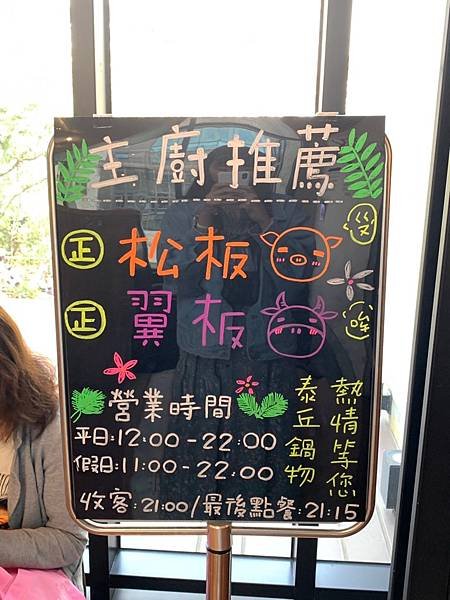 主廚推薦
正 松板 殳
正 翼板 哞
營業時間
平日:12:00-22:00
假日:11:00-22:00
熱情等您
泰丘鍋物
收客:21:00/最後點餐:21:15